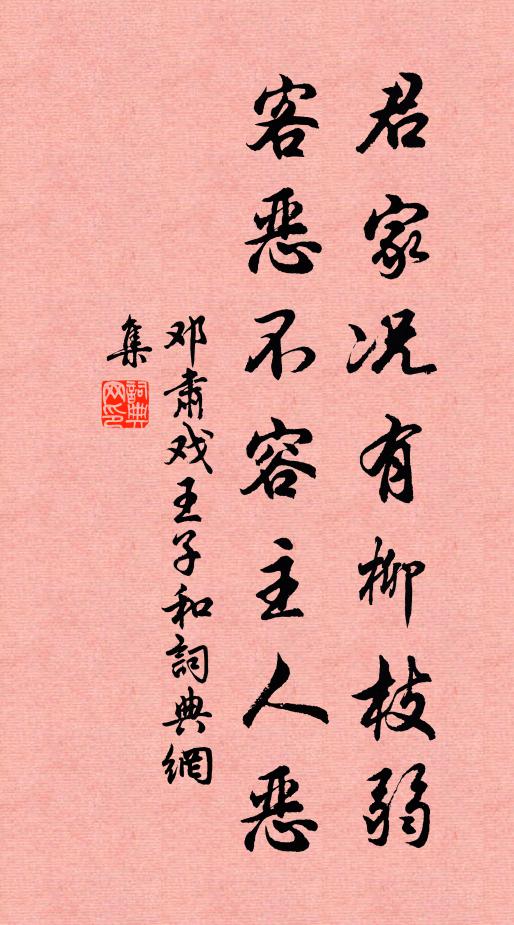 君家况有柳枝弱
客恶不容主人恶
邓肃戏王子和詞典網
集
詞典
网印